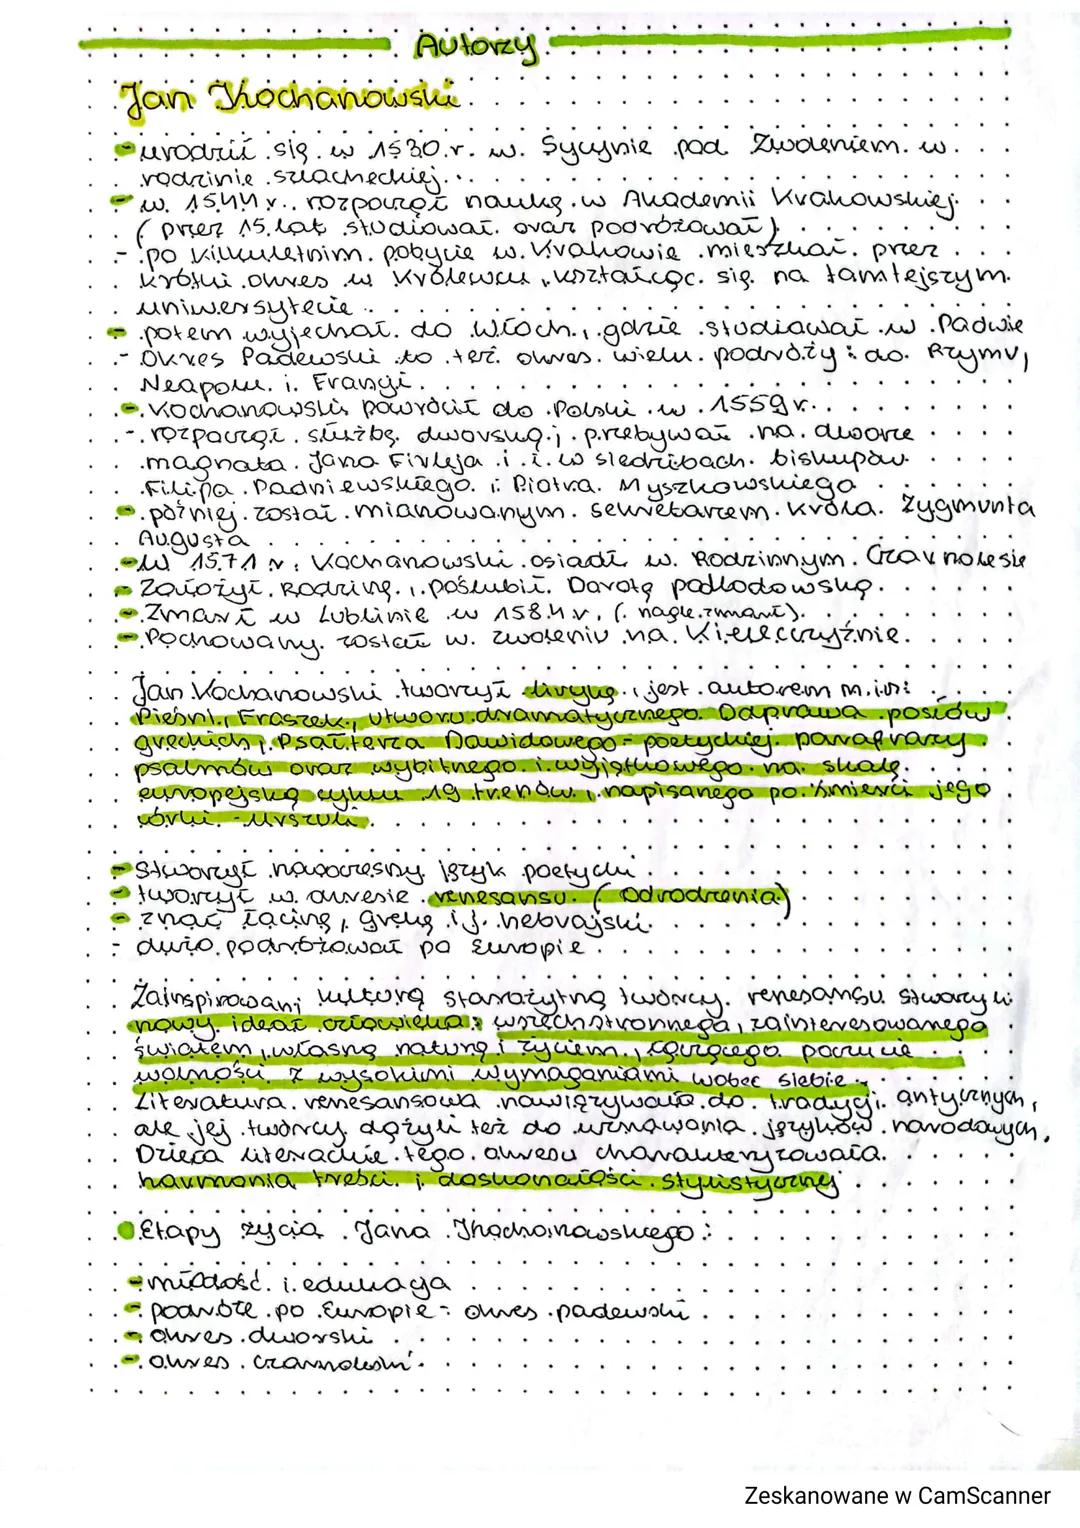 Autorzy
Jan Kochanowski
- urodził się w 1530 r. w Sycynie pod Zwoleniem w
rodzinie szlacheckiej.
- w 1544 r. rozpoczął naukę w Akademii Krakowskiej
( przez 15 lat studiował oraz podróżował)
- po kilkuletnim pobycie w Krakowie mieszkał przez
krótki okres w Królewcu, kształcąc się na tamtejszym
uniwersytecie
- potem wyjechał do Włoch, gdzie studiował w Padwie
- Okres Padewski to też okres wielu podróży: do Rzymu,
Neapolu i Francji.
- Kochanowski powrócił do Polski w 1559 r.
- rozpoczął służbę dworską; przebywał na dworze
magnata Jana Firleja i i w siedzibach biskupów
Filipa Padniewskiego i Piotra Myszkowskiego
- później został mianowanym sekretarzem króla Zygmunta
Augusta
- W 1571 r. Kochanowski osiadł w Rodzinnym Czarnolesie
- Założył Rodzinę, poślubił Dorotę podlodowską.
- Zmarł w Lublinie w 1584 r. ( nagle zmarł).
- Pochowany został w zwoleniu na Kieleczczyźnie.
Jan Kochanowski tworzył lirykę, jest autorem m.in:
Pieśni, Fraszek, utworu dramatycznego Odprawa posłów
greckich, Psałterza Dawidowego - poetyckiej parafrazy
psalmów oraz wybitnego i wyjątkowego na skalę
europejską cyklu 19 trenów, napisanego po śmierci jego
córki - Urszuli.
- Stworzył nowoczesny język poetycki
- tworzył w okresie renesansu ( Odrodzenia)
- znał łacinę, grekę i j. hebrajski
- dużo podróżował po Europie
Zainspirowani kulturą starożytną twórcy renesansu stworzyli
nowy ideał człowieka: wszechstronnego, zainteresowanego
światem, własną naturą i życiem, łączącego poczucie
wolności z wysokimi wymaganiami wobec siebie.
Literatura renesansowa nawiązywała do tradycji antycznych,
ale jej twórcy dążyli też do uznawania języków narodowych.
Dzieła literackie tego okresu charakteryzowała
harmonia treści i doskonałości stylistycznej
Etapy życia Jana Kochanowskiego:
- młodość i edukacja
- podróże po Europie - okres padewski
- okres dworski
- okres czarnoleski
Zeskanowane w CamScanner